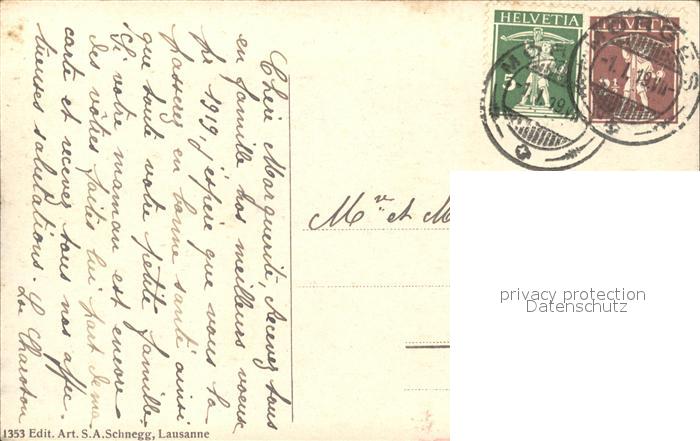 HELVETIA
HELVETIA
5
MORGES
-1.I.19.VII-
Chère Marguerite, Recevez tous
en famille nos meilleurs voeux
pr 1919, j'espère que vous la
passerez en bonne santé ainsi
que toute votre petite famille.
Si votre maman est encore
des vôtres faites lui part de ma
carte et recevez tous nos affec-
tueuses salutations.
Mr et M
privacy protection
Datenschutz
1353 Edit. Art. S.A.Schnegg, Lausanne